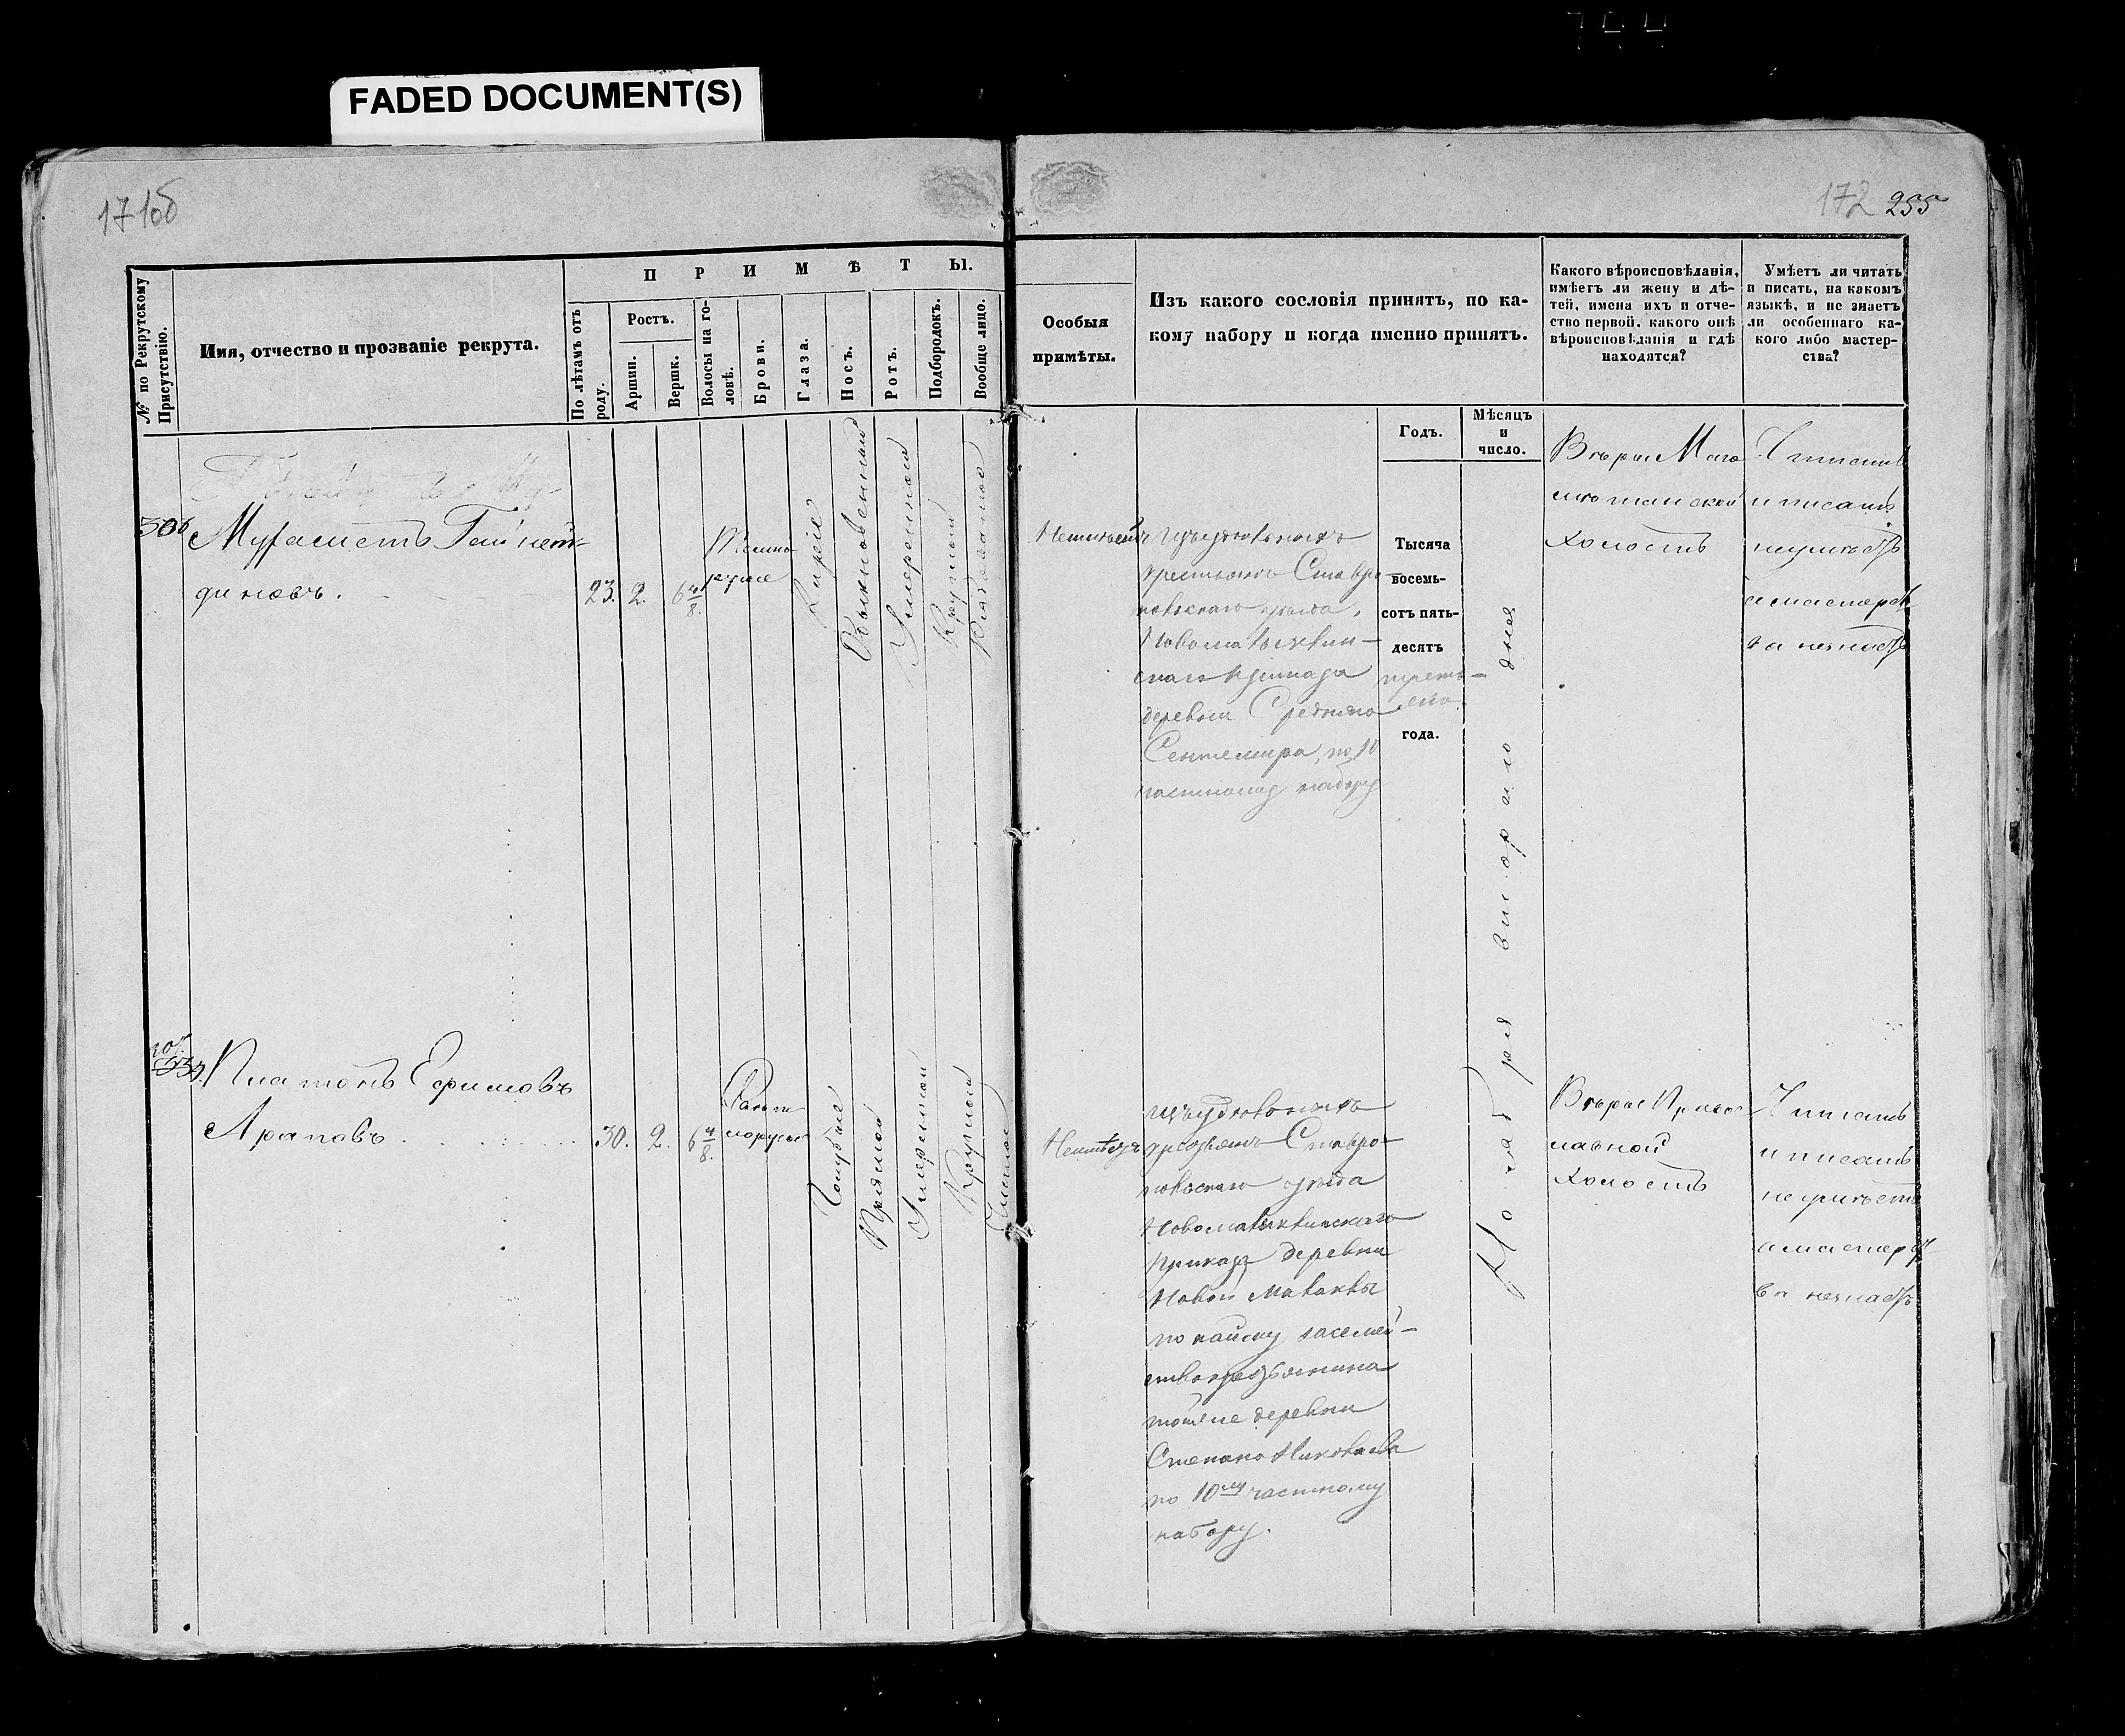 FADED DOCUMENT(S)
171об
172 255
№ по Рекрутскому Присутствію.
Имя, отчество и прозваніе рекрута.
П Р И М Ѣ Т Ы.
По лѣтамъ отъ роду.
Ростъ.
Аршин.
Вершк.
Волосы на головѣ.
Брови.
Глаза.
Носъ.
Ротъ.
Подбородокъ.
Вообще лицо.
Особыя
примѣты.
Изъ какого сословія принятъ, по ка-
кому набору и когда именно принятъ.
Какого вѣроисповѣданія,
имѣетъ ли жену и дѣ-
тей, имена ихъ и отче-
ство первой, какого онѣ
вѣроисповѣданія и гдѣ
находятся?
Умѣетъ ли читать
и писать, на какомъ
языкѣ, и не знаетъ
ли особеннаго ка-
кого либо мастер-
ства?
Годъ.
Мѣсяцъ
и
число.
306
Мухаметъ Гайнет-
диновъ.
23. 2. 6 4/8.
Темно
русые
Каріе
Обыкновенный
Умеренной
Круглой
Рябоватое
Неимѣетъ
Изъ удѣльныхъ
крестьянъ Ставро-
польскаго уѣзда,
Новомалыклин-
скаго приказа
деревни Средняго
Сентемира, по 10
частному набору
Тысяча
восемь-
сотъ пять-
десятъ
треть-
яго
года.
Ноября втораго дня
Веры Маго
метанской
Холостъ
Читать
и писать
неумѣетъ
а мастерст
ва незнаетъ
Платонъ Ефимовъ
Араповъ
30. 2. 6 4/8.
Голубые
Прямой
Умеренной
Круглой
Чистое
Неимѣетъ
Изъ удѣльныхъ
крестьянъ Ставро-
польскаго уѣзда
Новомалыклинскаго
приказа деревни
Новой Малыклы
по найму за семей-
ство крестьянина
тойже деревни
Степана Николаева
по 10му частному
набору.
Веры Правос
лавной
Холостъ
Читать
и писать
неумѣетъ
а мастерст
ва незнаетъ